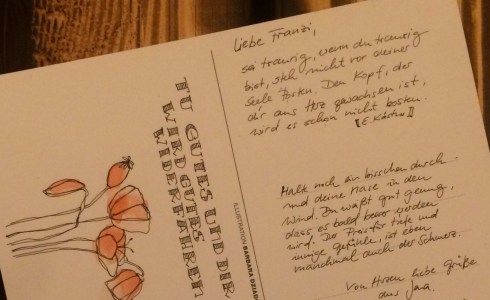 TU GUTES UND DIR
WIRD GUTES
WIDERFAHREN
ILLUSTRATION BARBARA DZIAD
Liebe Franzi,
sei traurig, wenn du traurig
bist, steh nicht vor deiner
Seele Posten. Den Kopf, der
dir ans Herz gewachsen ist,
wird es schon nicht kosten.
[E. Kästner]
Halt noch ein bisschen durch
und deine Nase in den
Wind. Du weißt gut genug,
dass es bald besser werden
wird. Der Preis für tiefe und
innige Gefühle ist eben
manchmal auch der Schmerz.
Von Herzen liebe Grüße
aus Jana